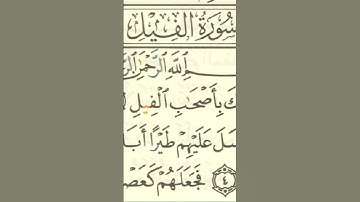 سُورَةُ الْفِيلِ
ـمِ ٱللَّهِ ٱلرَّحْمَٰنِ ٱلرَّ
كَ بِأَصْحَٰبِ ٱلْفِيلِ
ـسَلَ عَلَيْهِمْ طَيْرًا أَبَا
٤ فَجَعَلَهُمْ كَعَصْ